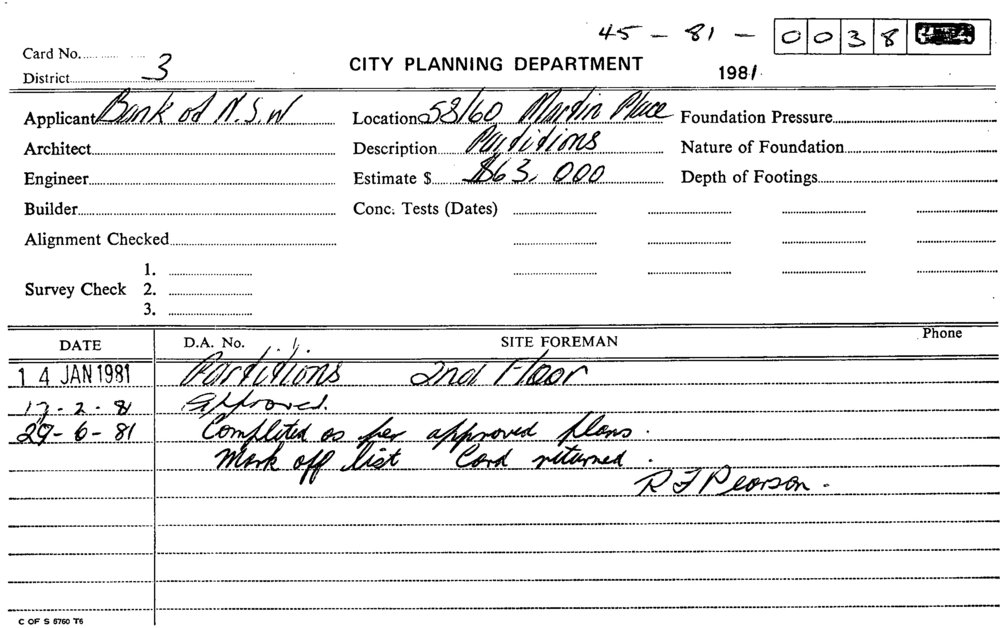 45 - 81 - 0038
Card No.
District 3
CITY PLANNING DEPARTMENT
1981
Applicant Bank of N.S.W Location 58/60 Martin Place Foundation Pressure
Architect Description Partitions Nature of Foundation
Engineer Estimate $ $63,000 Depth of Footings
Builder Conc. Tests (Dates)
Alignment Checked
1.
Survey Check 2.
3.
DATE D.A. No. SITE FOREMAN Phone
14 JAN 1981 Partitions 2nd Floor
17-2-81 Approved.
29-6-81 Completed as per approved plans.
Mark off list Card returned.
R F Pearson.
C OF S 5760 T6